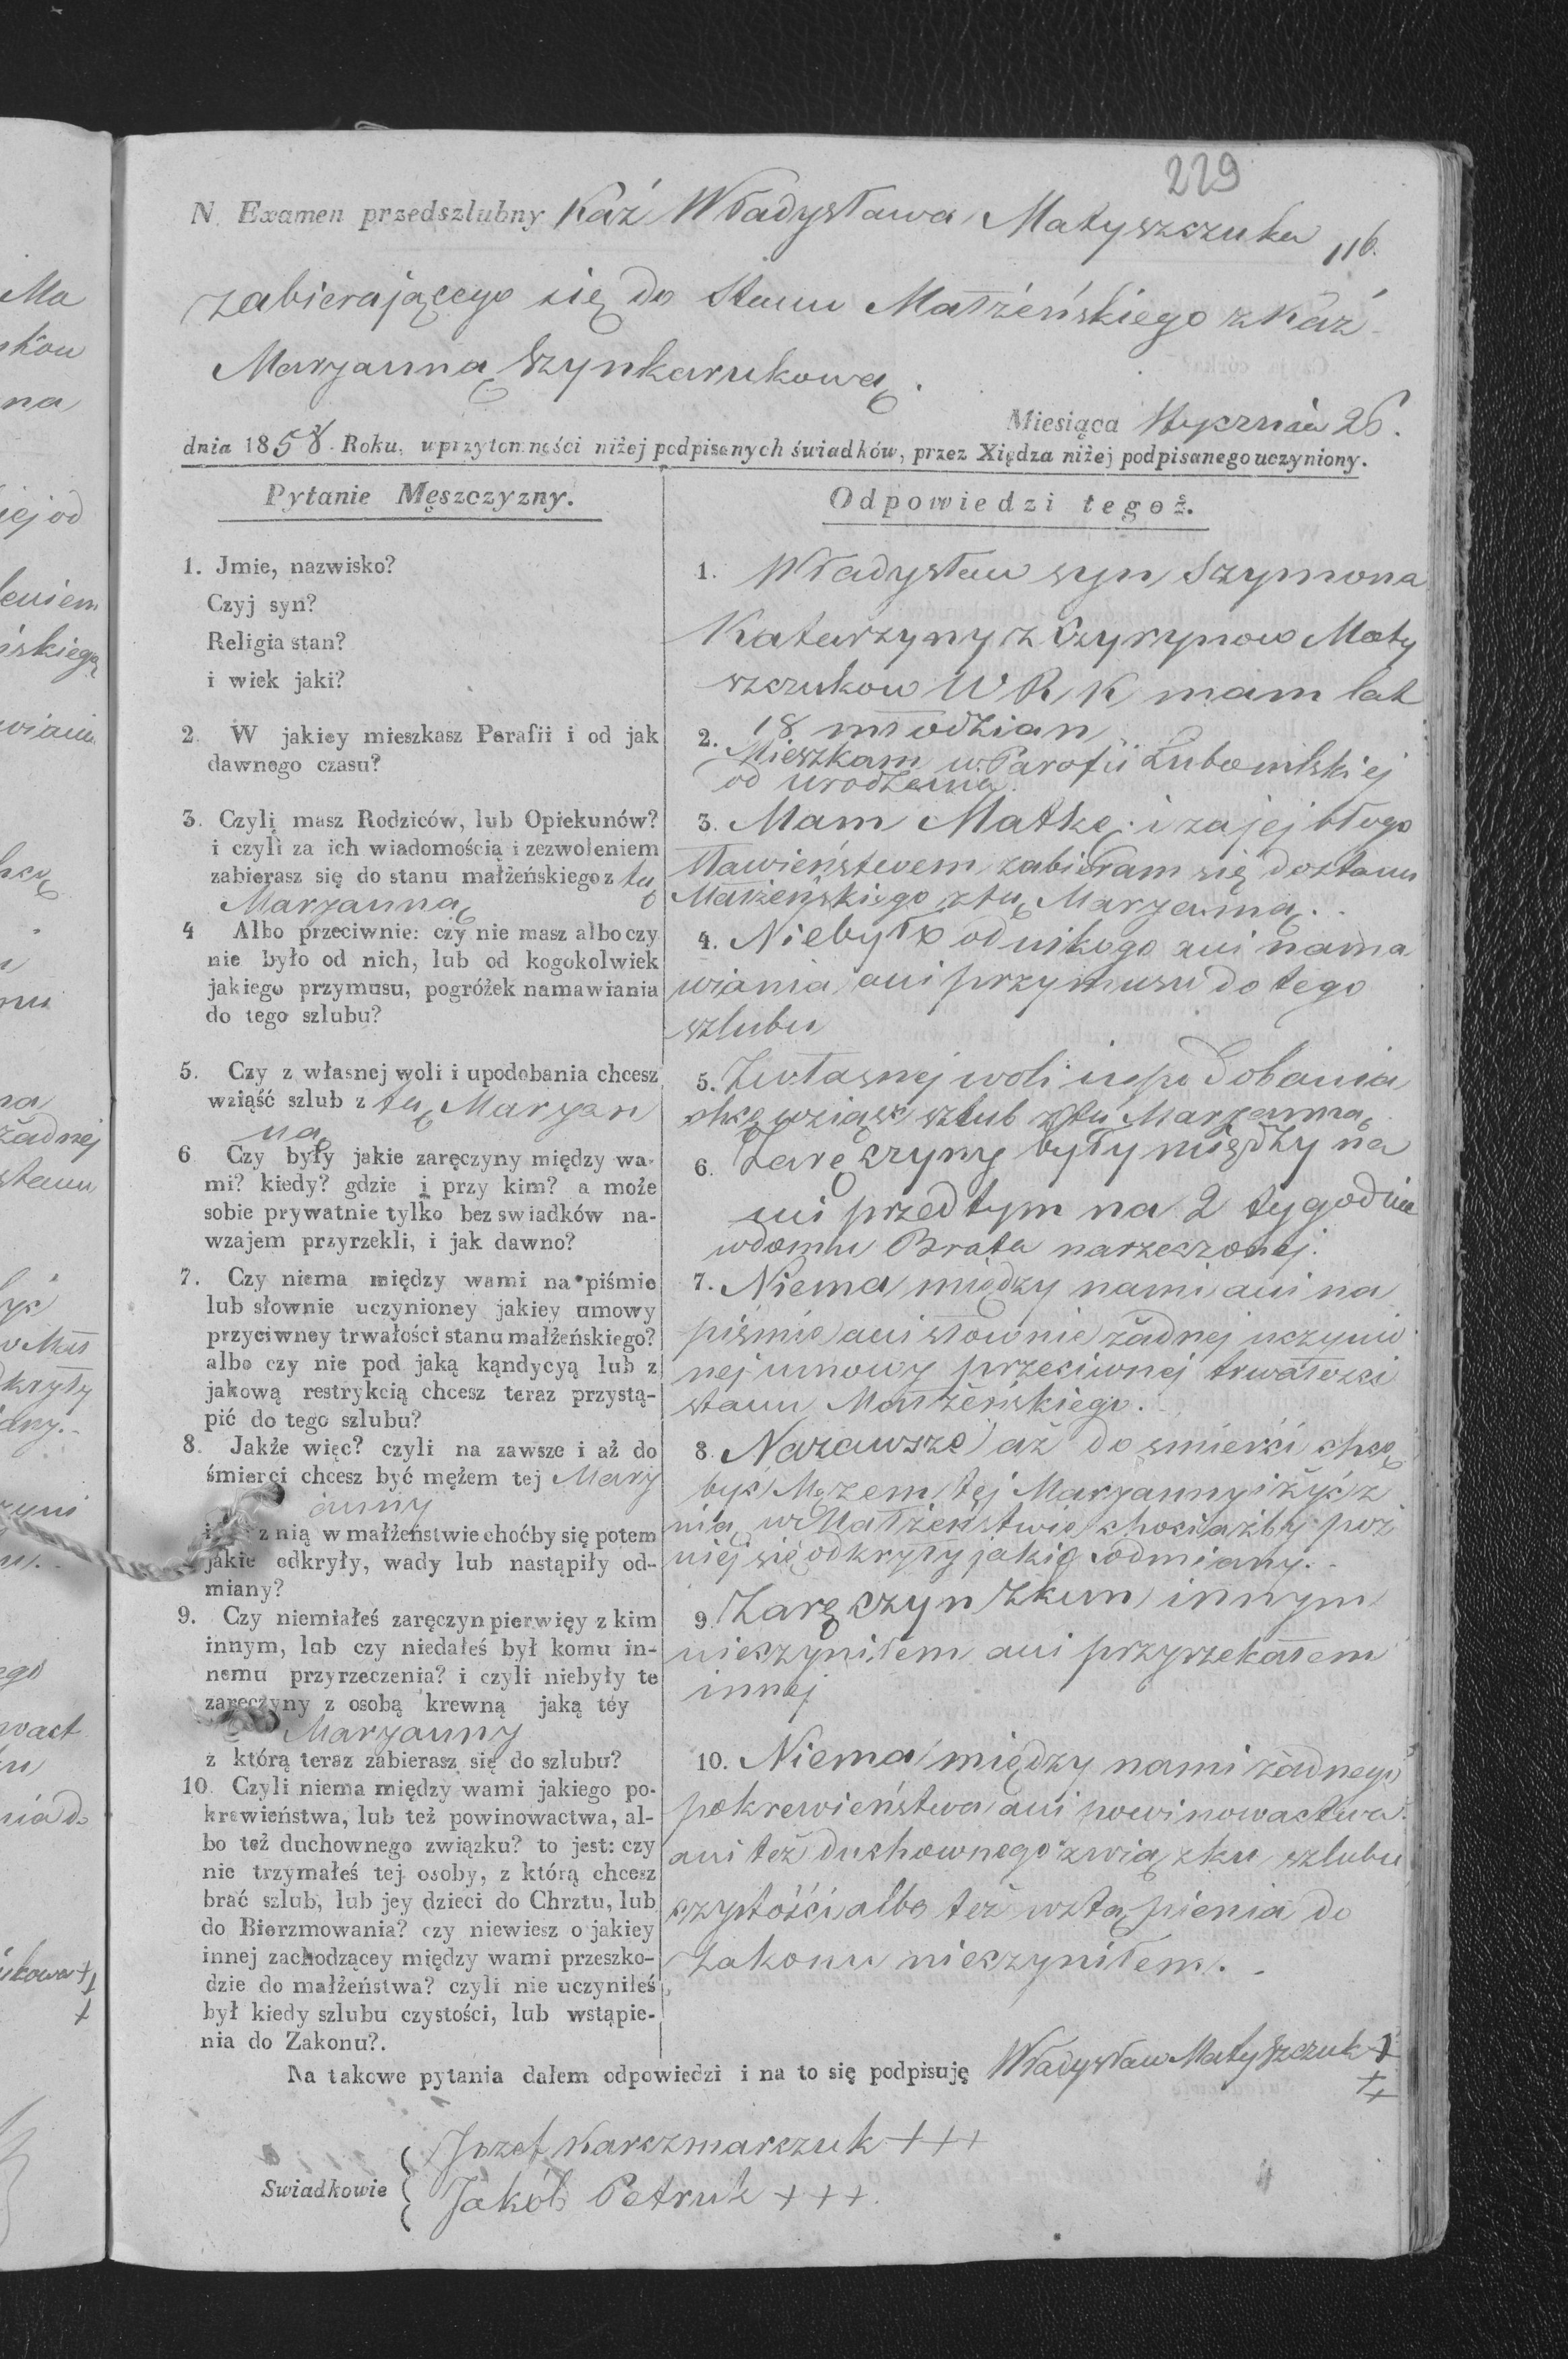 229
N. Examen przedszlubny Każ Władysława Matyszczuka 116.
zabierającego się do Stanu Małżeńskiego z Każ
Maryanną Szynkarukową.
Miesiąca Stycznia 26.
dnia 1858. Roku, w przytomności niżej podpisanych świadków, przez Xiędza niżej podpisanego uczyniony.
Pytanie Męszczyzny.
1. Jmie, nazwisko?
Czyj syn?
Religia stan?
i wiek jaki?
2. W jakiey mieszkasz Parafii i od jak
dawnego czasu?
3. Czyli masz Rodziców, lub Opiekunów?
i czyli za ich wiadomością i zezwoleniem
zabierasz się do stanu małżeńskiego z tą
Maryanną
4 Albo przeciwnie: czy nie masz albo czy
nie było od nich, lub od kogokolwiek
jakiego przymusu, pogróżek namawiania
do tego szlubu?
5. Czy z własnej woli i upodobania chcesz
wziąść szlub z tą Maryan
ną
6 Czy były jakie zaręczyny między wa-
mi? kiedy? gdzie i przy kim? a może
sobie prywatnie tylko bez swiadków na-
wzajem przyrzekli, i jak dawno?
7. Czy niema między wami na piśmie
lub słownie uczynioney jakiey umowy
przyciwney trwałości stanu małżeńskiego?
albo czy nie pod jaką kąndycyą lub z
jakową restrykcią chcesz teraz przystą-
pić do tego szlubu?
8. Jakże więc? czyli na zawsze i aż do
śmierci chcesz być mężem tej Mary
anny
z nią w małżeństwie choćby się potem
jakie odkryły, wady lub nastąpiły od-
miany?
9. Czy niemiałeś zaręczyn pierwięy z kim
innym, lub czy niedałeś był komu in-
nemu przyrzeczenia? i czyli niebyły te
zaręczyny z osobą krewną jaką téy
Maryanny
z którą teraz zabierasz się do szlubu?
10. Czyli niema między wami jakiego po-
krewieństwa, lub też powinowactwa, al-
bo też duchownego związku? to jest: czy
nie trzymałeś tej osoby, z którą chcesz
brać szlub, lub jey dzieci do Chrztu, lub
do Bierzmowania? czy niewiesz o jakiey
innej zachodzącey między wami przeszko-
dzie do małżeństwa? czyli nie uczyniłeś
był kiedy szlubu czystości, lub wstąpie-
nia do Zakonu?.
Odpowiedzi tegoż.
1. Władysław syn Szymona
Katarzyny z Maty
szczukow W R K mam lat
18 młodzian
2. Mieszkam w Parafii Lubomlskiej
od urodzenia.
3. Mam Matkę i za jej błogo
sławieństwem zabieram się do stanu
Małżeńskiego z tą Maryanną.
4. Niebyło od nikogo ani nama
wiania ani przymusu do tego
szlubu
5. Zwłasnej woli i upodobania
chcę wziąść szlub z tą Maryanną
6. Zaręczyny były między na
mi przed tym na 2 tygodnie
wdomu Brata narzeczonej.
7. Niema między nami ani na
piśmie ani słownie żadnej uczynio
nej umowy przeciwnej trwałości
stanu Małżeńskiego.
8. Nazawsze aż do smierci chcę
być Mężem tej Maryanny i żyć z
nią w Małżeństwie chociażby poź
niej się odkryły jakie odmiany.
9 Zaręczyn zkim innym
nieczyniłem ani przyrzekałem
innej
10. Niema między nami żadnego
pokrewieństwa ani powinowactwa
ani też duchownego związku szlubu
czystości albo też wstąpienia do
Zakonu nieczyniłem.
Na takowe pytania dałem odpowiedzi i na to się podpisuję Władysław Matyszczuk +
++
Swiadkowie
Jozef Karczmarczuk +++
Jakób Petruk +++.